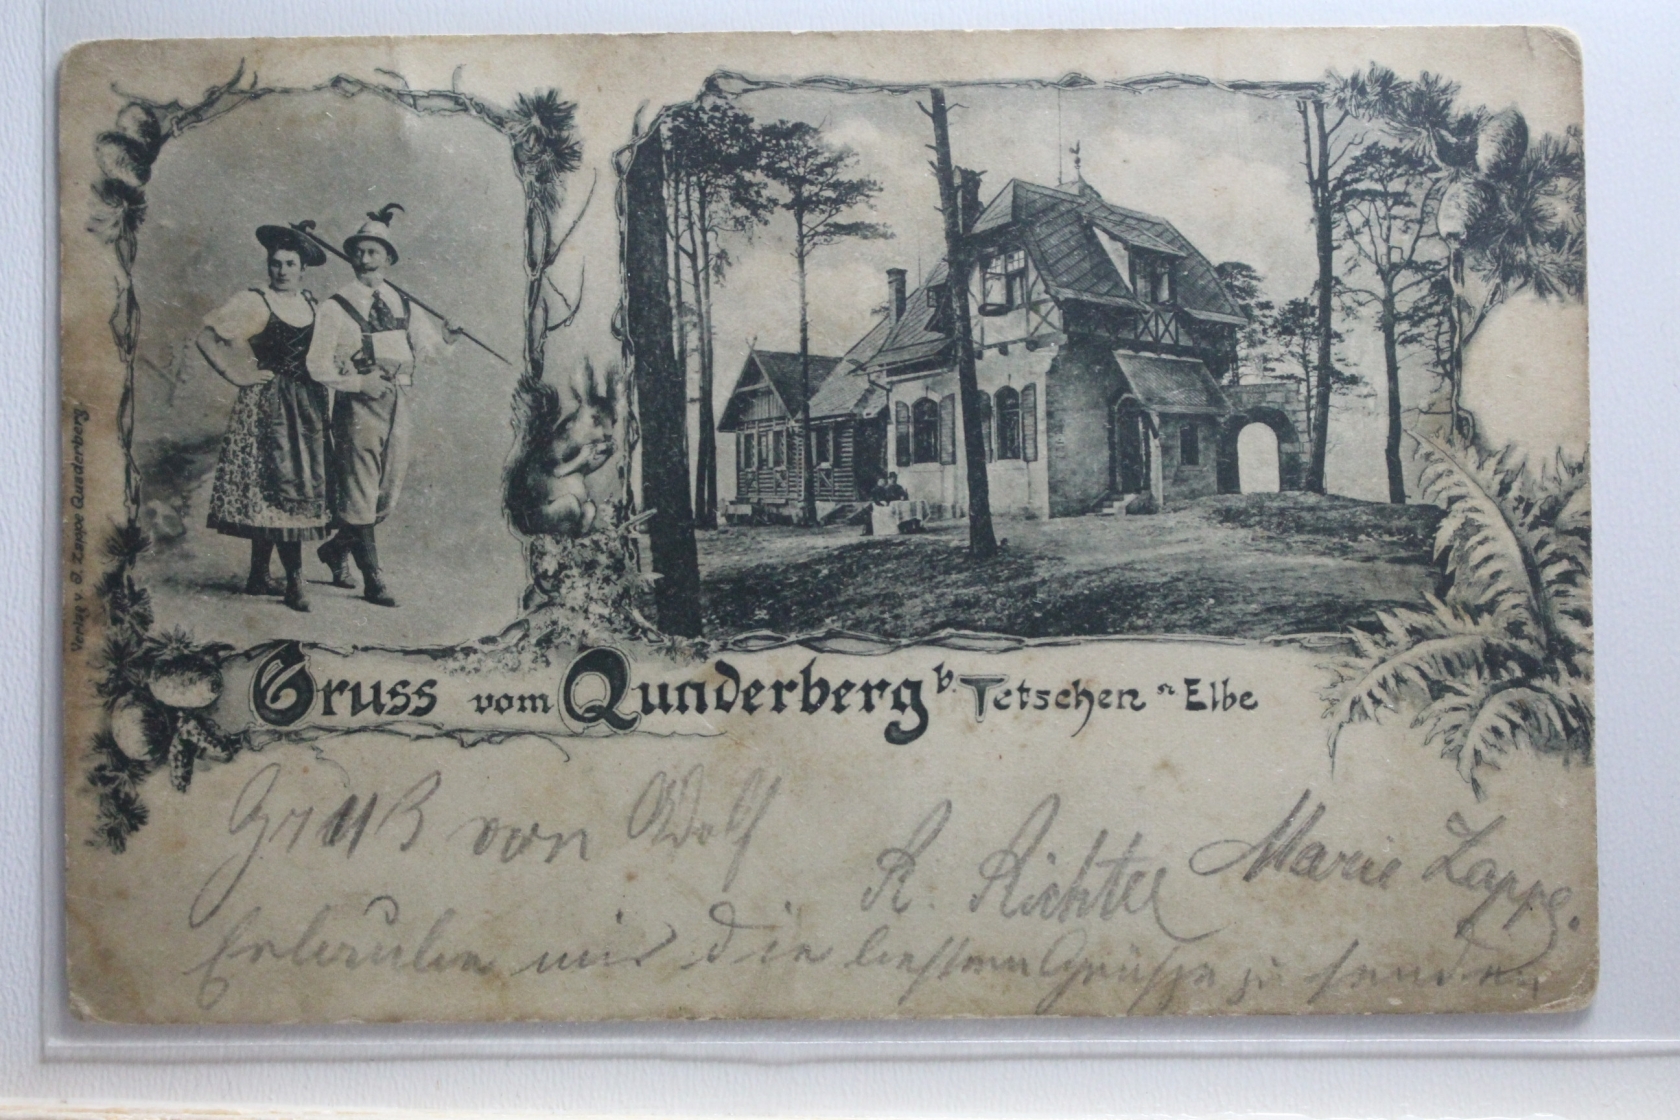 Verlag v. J. Zappe Quaderberg
Gruss vom Quaderberg b. Tetschen a Elbe
Gruß von Adolf
R. Richter Marie Zappe.
Erlaube mir die besten Grüsse zu senden